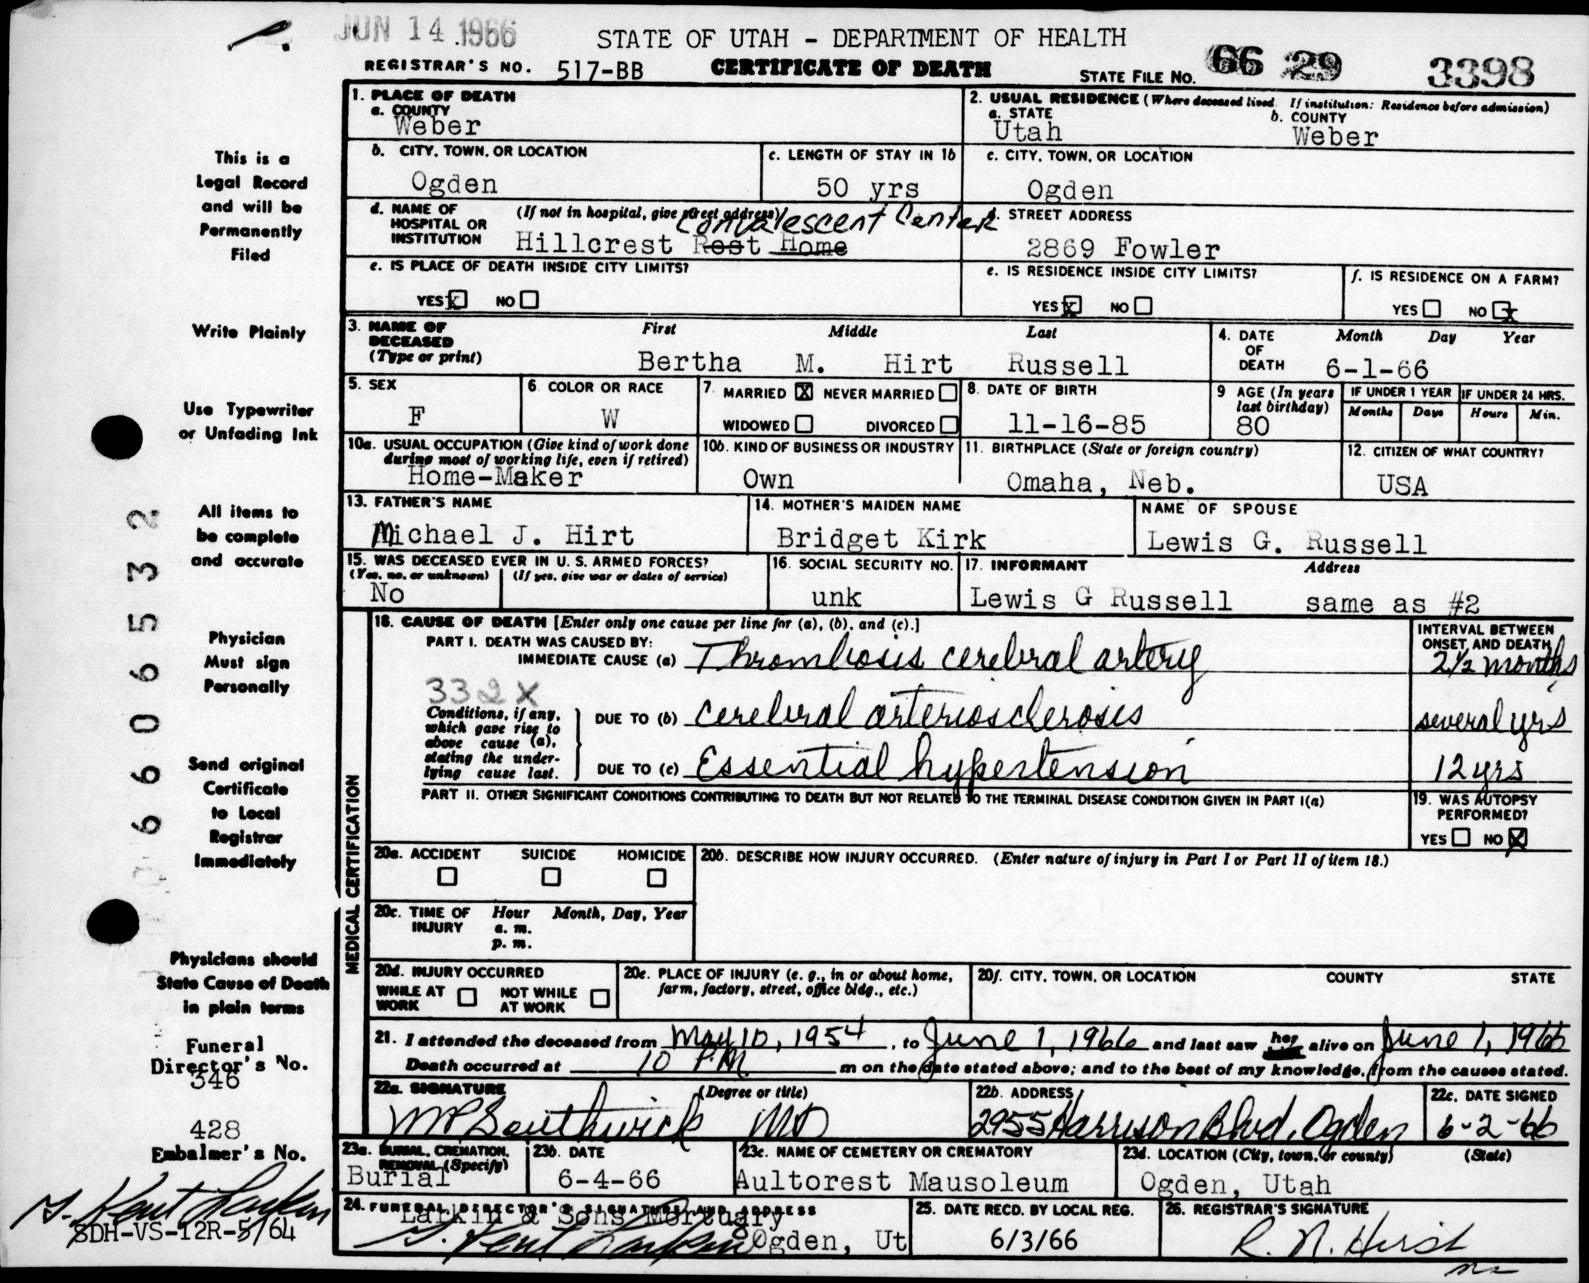 JUN 14 1966
STATE OF UTAH - DEPARTMENT OF HEALTH
REGISTRAR'S NO. 517-BB CERTIFICATE OF DEATH STATE FILE NO. 66 29 3398
1. PLACE OF DEATH
a. COUNTY
Weber
2. USUAL RESIDENCE (Where deceased lived. If institution: Residence before admission)
a. STATE b. COUNTY
Utah Weber
b. CITY, TOWN, OR LOCATION
Ogden
c. LENGTH OF STAY IN 1b
50 yrs
c. CITY, TOWN, OR LOCATION
Ogden
d. NAME OF HOSPITAL OR INSTITUTION (If not in hospital, give street address)
Convalescent Center
Hillcrest Rest Home
d. STREET ADDRESS
2869 Fowler
e. IS PLACE OF DEATH INSIDE CITY LIMITS?
YES x NO
e. IS RESIDENCE INSIDE CITY LIMITS?
YES x NO
f. IS RESIDENCE ON A FARM?
YES NO x
3. NAME OF DECEASED (Type or print) First Middle Last
Bertha M. Hirt Russell
4. DATE OF DEATH Month Day Year
6-1-66
5. SEX
F
6. COLOR OR RACE
W
7. MARRIED X NEVER MARRIED
WIDOWED DIVORCED
8. DATE OF BIRTH
11-16-85
9 AGE (In years last birthday)
80
IF UNDER 1 YEAR IF UNDER 24 HRS.
Months Days Hours Min.
10a. USUAL OCCUPATION (Give kind of work done during most of working life, even if retired)
Home-Maker
10b. KIND OF BUSINESS OR INDUSTRY
Own
11. BIRTHPLACE (State or foreign country)
Omaha, Neb.
12. CITIZEN OF WHAT COUNTRY?
USA
13. FATHER'S NAME
Michael J. Hirt
14. MOTHER'S MAIDEN NAME
Bridget Kirk
NAME OF SPOUSE
Lewis G. Russell
15. WAS DECEASED EVER IN U. S. ARMED FORCES?
(Yes, no, or unknown) (If yes, give war or dates of service)
No
16. SOCIAL SECURITY NO.
unk
17. INFORMANT Address
Lewis G Russell same as #2
18. CAUSE OF DEATH [Enter only one cause per line for (a), (b), and (c).]
INTERVAL BETWEEN ONSET AND DEATH
PART I. DEATH WAS CAUSED BY:
IMMEDIATE CAUSE (a) Thrombosis cerebral artery 2½ months
332X
Conditions, if any, which gave rise to above cause (a), stating the underlying cause last.
DUE TO (b) cerebral arteriosclerosis several yrs
DUE TO (c) Essential hypertension 12 yrs
PART II. OTHER SIGNIFICANT CONDITIONS CONTRIBUTING TO DEATH BUT NOT RELATED TO THE TERMINAL DISEASE CONDITION GIVEN IN PART I(a)
19. WAS AUTOPSY PERFORMED?
YES NO X
MEDICAL CERTIFICATION
20a. ACCIDENT SUICIDE HOMICIDE
20b. DESCRIBE HOW INJURY OCCURRED. (Enter nature of injury in Part I or Part II of item 18.)
20c. TIME OF INJURY Hour Month, Day, Year
a. m.
p. m.
20d. INJURY OCCURRED
WHILE AT WORK NOT WHILE AT WORK
20e. PLACE OF INJURY (e. g., in or about home, farm, factory, street, office bldg., etc.)
20f. CITY, TOWN, OR LOCATION COUNTY STATE
21. I attended the deceased from May 10, 1954, to June 1, 1966 and last saw her alive on June 1, 1966
Death occurred at 10 P.M. m on the date stated above; and to the best of my knowledge, from the causes stated.
22a. SIGNATURE (Degree or title)
MP Southwick MD
22b. ADDRESS
2955 Harrison Blvd. Ogden
22c. DATE SIGNED
6-2-66
23a. BURIAL, CREMATION, REMOVAL (Specify)
Burial
23b. DATE
6-4-66
23c. NAME OF CEMETERY OR CREMATORY
Aultorest Mausoleum
23d. LOCATION (City, town, or county) (State)
Ogden, Utah
24. FUNERAL DIRECTOR'S SIGNATURE AND ADDRESS
Larkin & Sons Mortuary
G. Kent Larkin Ogden, Ut
25. DATE RECD. BY LOCAL REG.
6/3/66
26. REGISTRAR'S SIGNATURE
R. N. Hirst
This is a
Legal Record
and will be
Permanently
Filed
Write Plainly
Use Typewriter
or Unfading Ink
All items to
be complete
and accurate
Physician
Must sign
Personally
Send original
Certificate
to Local
Registrar
Immediately
Physicians should
State Cause of Death
in plain terms
Funeral
Director's No.
346
428
Embalmer's No.
G. Kent Larkin
SDH-VS-12R-5/64